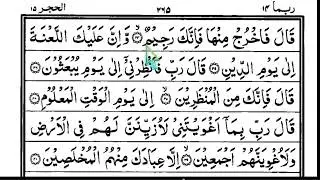 ربما ١٤ ٢٦٥ الحجر ١٥
قَالَ فَاخْرُجْ مِنْهَا فَاِنَّكَ رَجِيْمٌ ۙ وَّاِنَّ عَلَيْكَ اللَّعْنَةَ
اِلٰى يَوْمِ الدِّيْنِ قَالَ رَبِّ فَاَنْظِرْنِىْٓ اِلٰى يَوْمِ يُبْعَثُوْنَ
قَالَ فَاِنَّكَ مِنَ الْمُنْظَرِيْنَ ۙ اِلٰى يَوْمِ الْوَقْتِ الْمَعْلُوْمِ
قَالَ رَبِّ بِمَآ اَغْوَيْتَنِىْ لَاُزَيِّنَنَّ لَهُمْ فِى الْاَرْضِ
وَلَاُغْوِيَنَّهُمْ اَجْمَعِيْنَ ۙ اِلَّا عِبَادَكَ مِنْهُمُ الْمُخْلَصِيْنَ